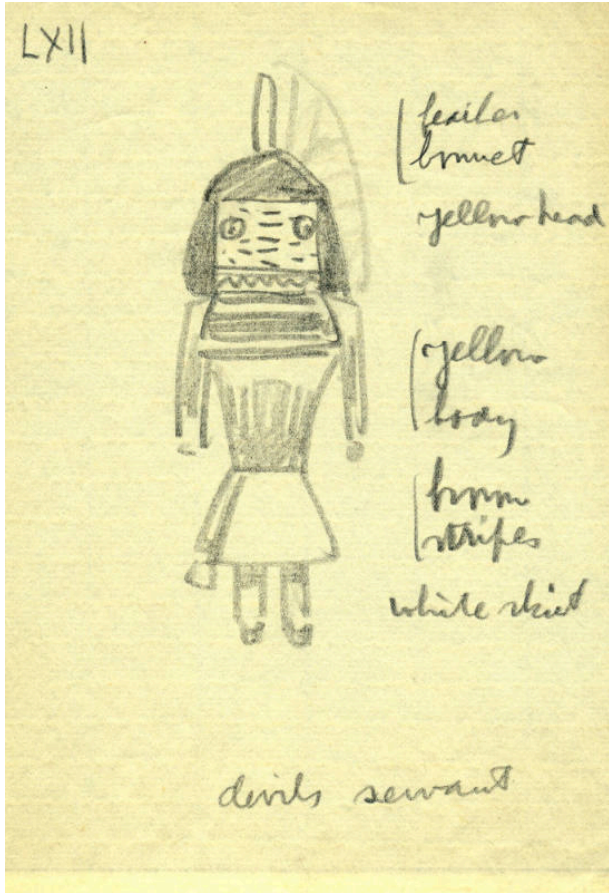 LXII
bonnet
yellow head
yellow
body
brown
stripes
white skirt
devils servant